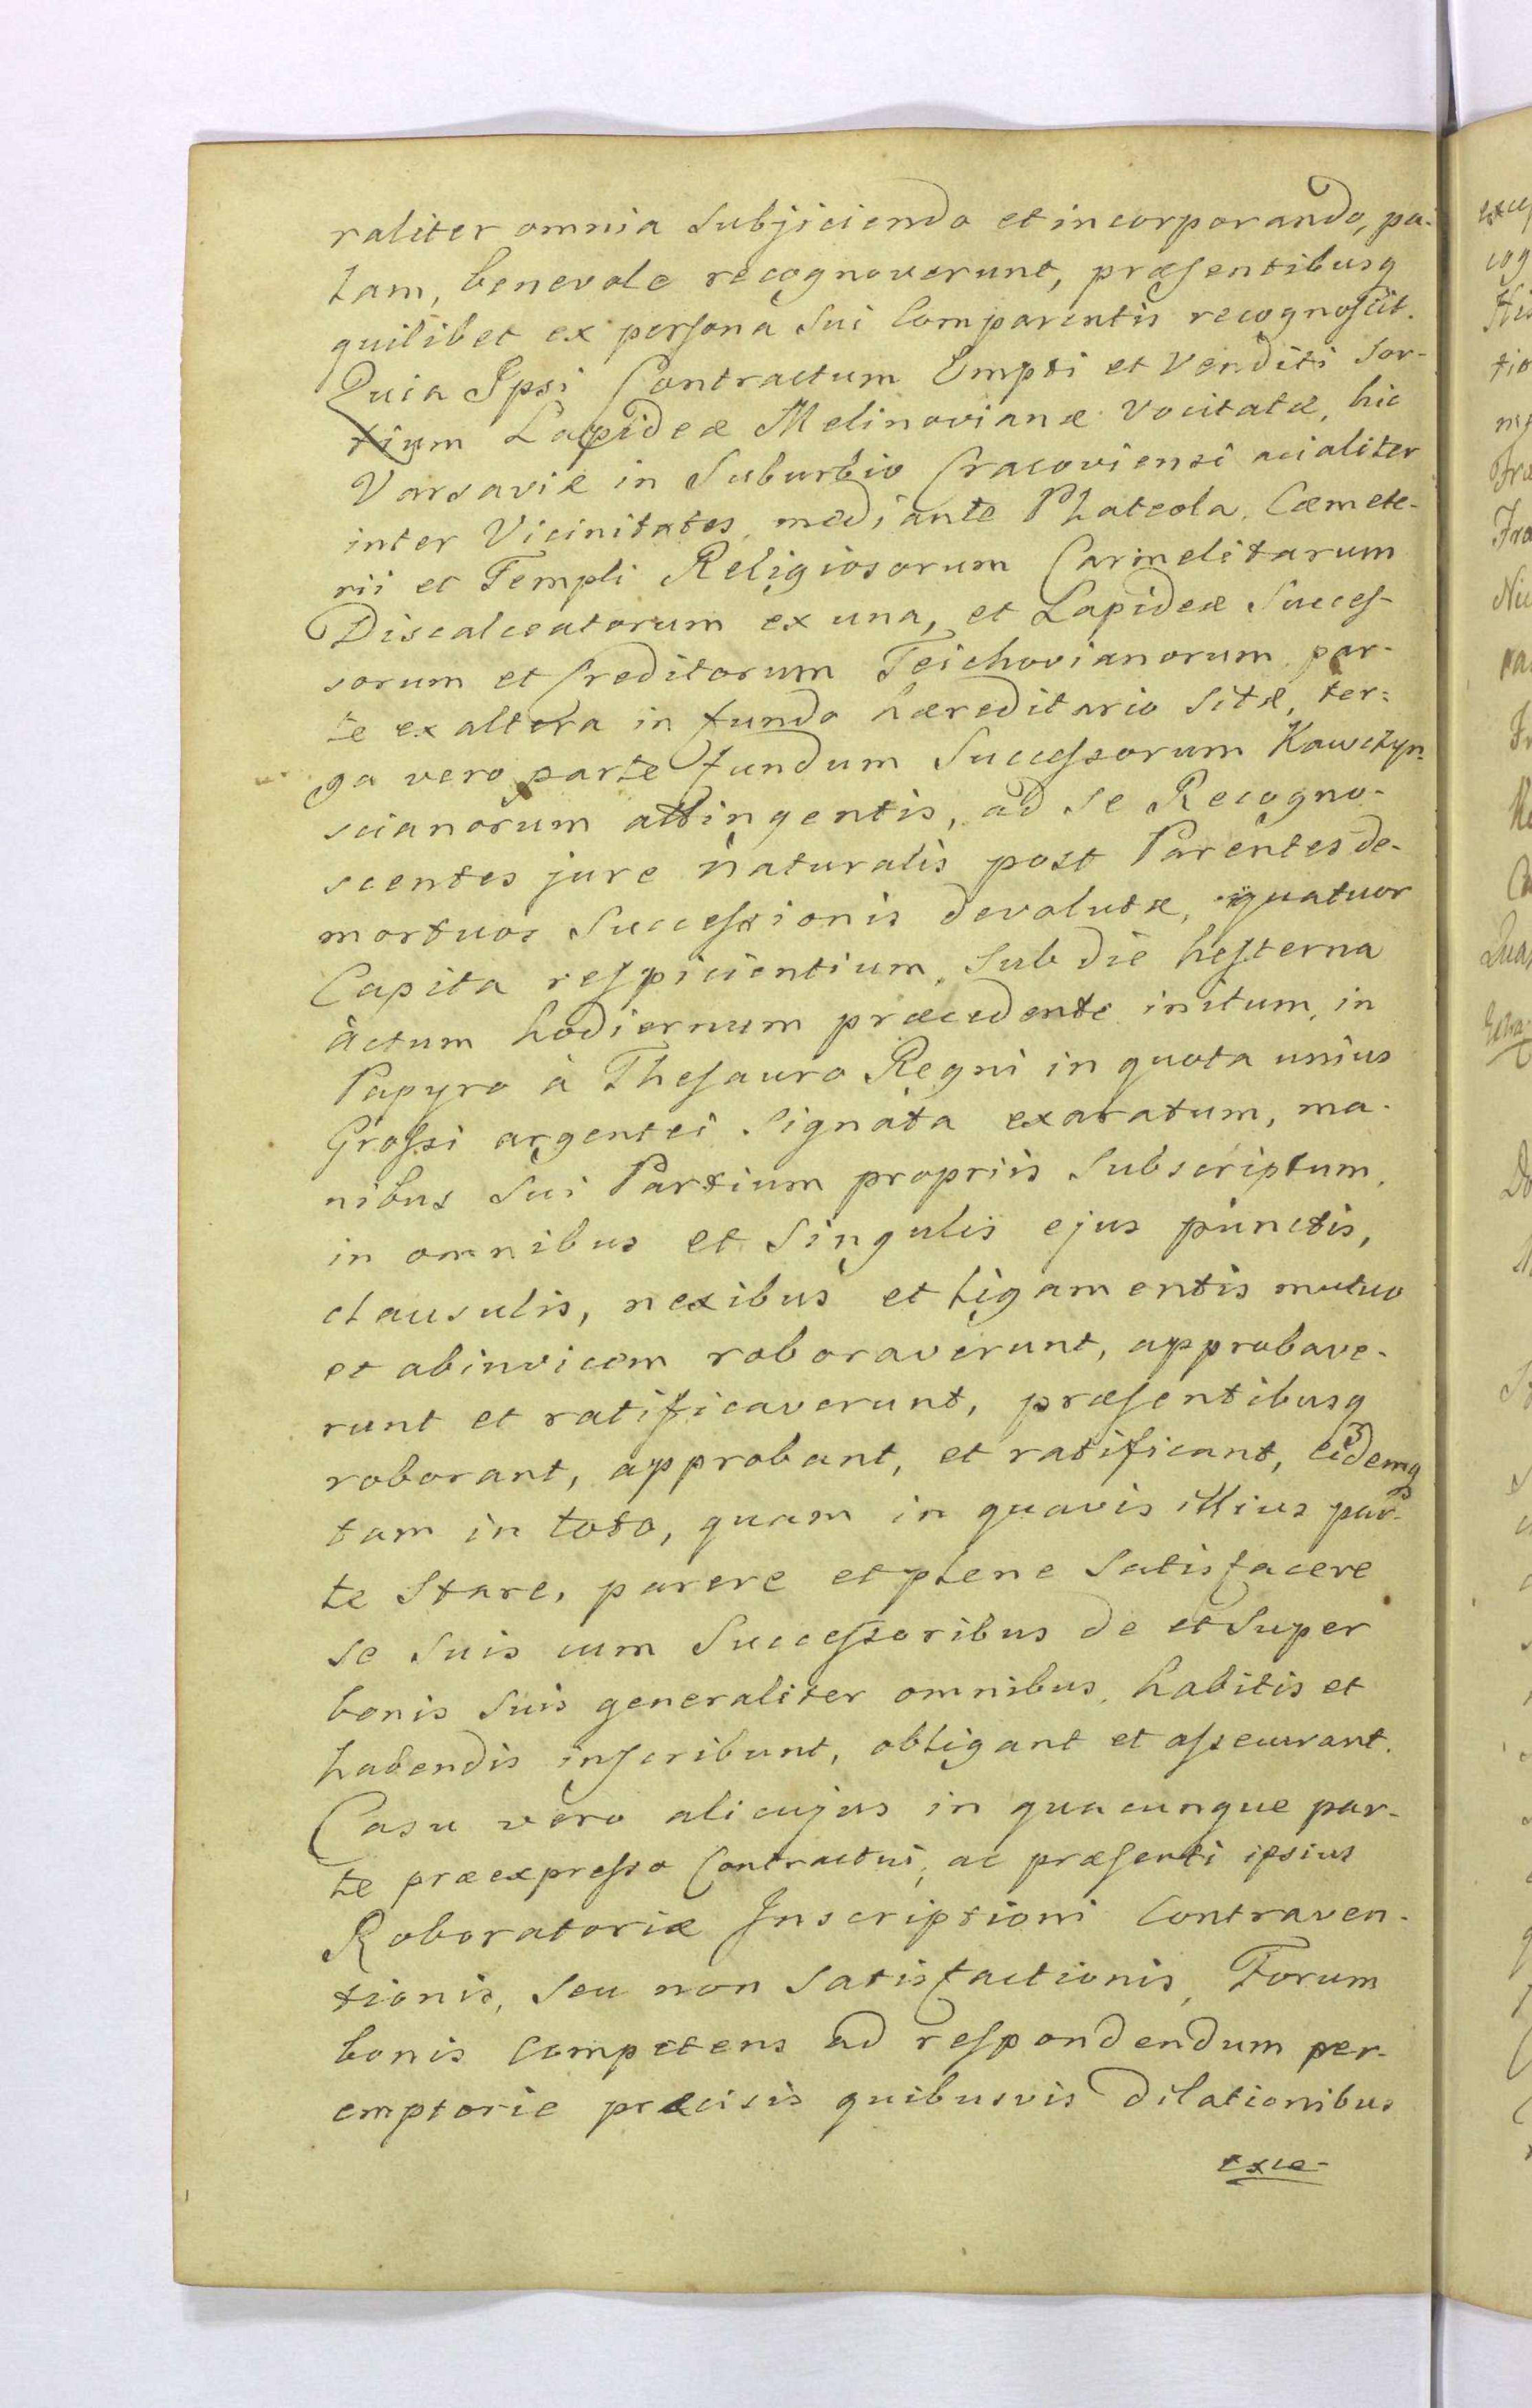 raliter omnia Subjiciendo et incorporando, pa-
lam, benevole recognoverunt, præsentibusq
quilibet ex persona Sui Comparentis recognoscit.
Quia Ipsi Contractum Empti et Venditi Sor-
tium Lapideæ Melinovianæ Vocitatæ, hic
Varsaviæ in Suburbio Cracoviensi acialiter
inter Vicinitates, mediante Plateola, Cæmete-
rii et Templi Religiosorum Carmelitarum
Discalceatorum ex una, et Lapideæ Succes-
sorum et Creditorum Teichovianorum par-
te ex altera in fundo hæreditario Sitæ, ter-
ga vero parte fundum Successorum Kawczyn-
scianorum attingentis, ad Se Recogno-
scentes jure naturalis post Parentes de-
mortuos Successionis devolutæ, quatuor
Capita respicientium, Sub die hesterna
àctum hodiernum præcedente initum, in
Papyro à Thesauro Regni in quota unius
Grossi argentei Signata exaratum, ma-
nibus Sui Partium propriis Subscriptum,
in omnibus et Singulis ejus punctis,
clausulis, nexibus et ligamentis mutuo
et abinvicem roboraverunt, approbave-
runt et ratificaverunt, præsentibusq
roborant, approbant, et ratificant, eidemq
tam in toto, quam in quavis illius par-
te Stare, parere et plene Satisfacere
se Suis cum Successoribus de et Super
bonis Suis generaliter omnibus, habitis et
habendis inscribunt, obligant et assecurant.
Casu vero alicujus in quacunque par-
te præexpresso Contractui, ac præsenti ipsius
Roboratoriæ Inscriptioni Contraven-
tionis, Seu non Satisfactionis, Forum
bonis Competens ad respondendum per-
emptorie præcisis quibusvis dilationibus
exce-